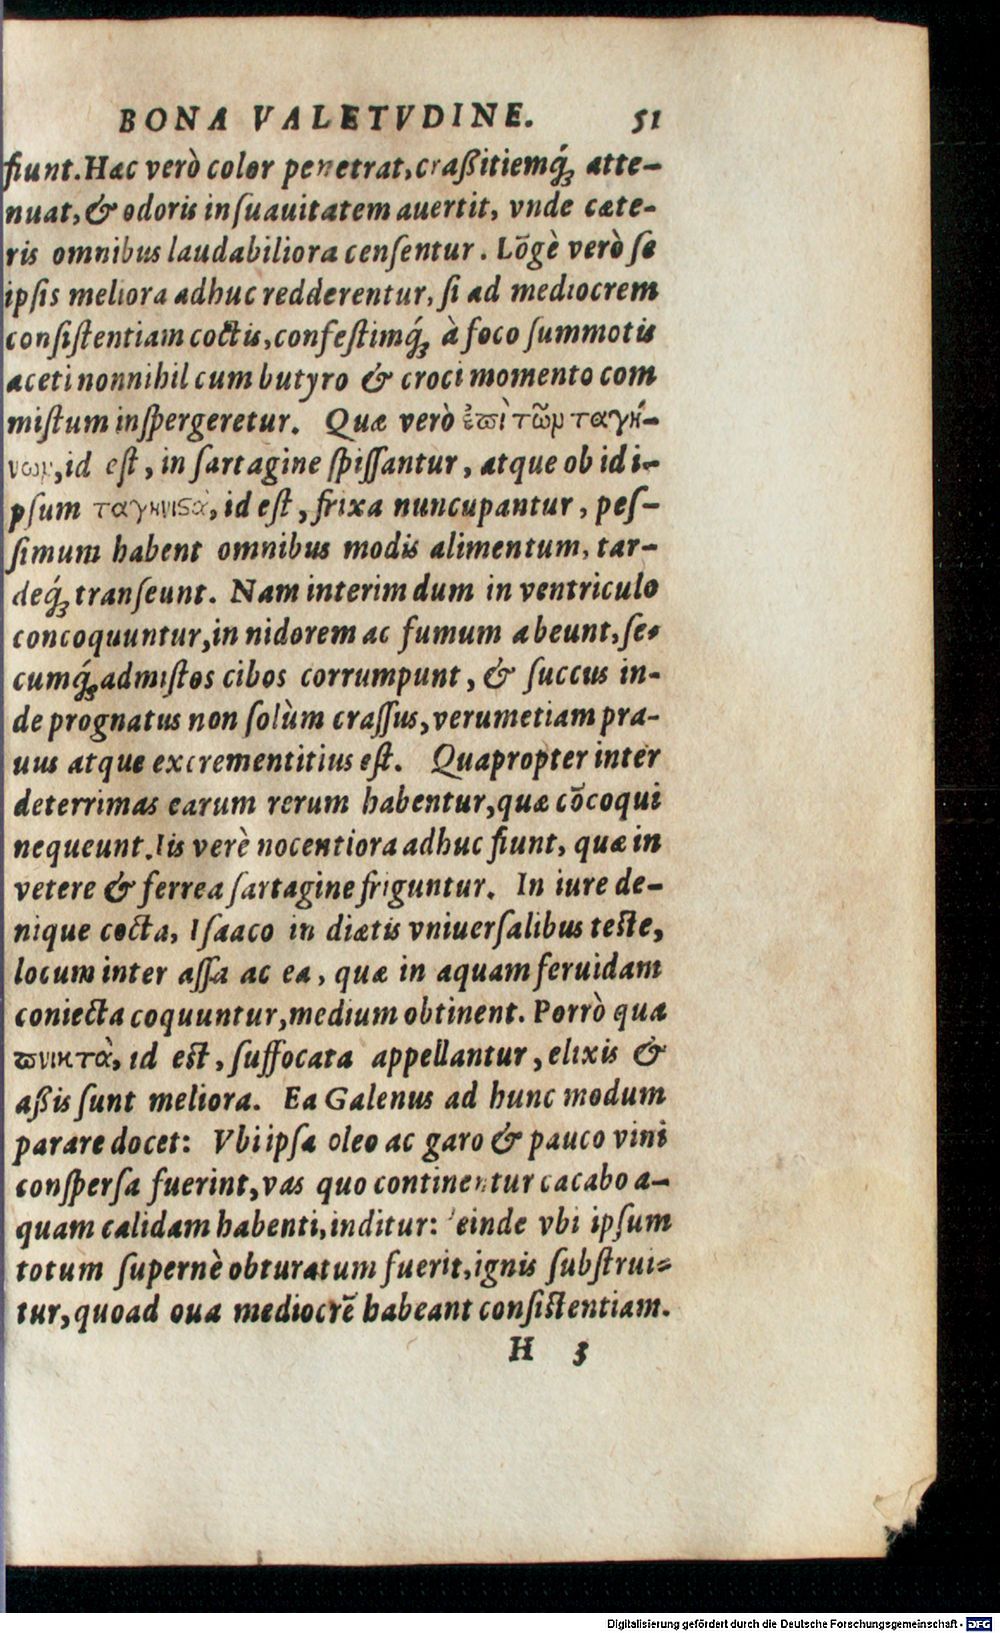 BONA VALETVDINE. 51
fiunt. Hac verò color penetrat, craßitiemq́ꝫ atte-
nuat, & odoris insuauitatem auertit, vnde cæte-
ris omnibus laudabiliora censentur. Lõgè verò se
ipsis meliora adhuc redderentur, si ad mediocrem
consistentiam coctis, confestimq́ꝫ à foco summotis
aceti nonnihil cum butyro & croci momento com
mistum inspergeretur. Quæ verò ἐϖὶ τῶμ ταγή-
νωμ, id est, in sartagine spissantur, atque ob id i-
psum ταγηνιϛὰ, id est, frixa nuncupantur, pes-
simum habent omnibus modis alimentum, tar-
deq́ꝫ transeunt. Nam interim dum in ventriculo
concoquuntur, in nidorem ac fumum abeunt, se-
cumq́ꝫ admistos cibos corrumpunt, & succus in-
de prognatus non solùm crassus, verumetiam pra-
uus atque excrementitius est. Quapropter inter
deterrimas earum rerum habentur, quæ cõcoqui
nequeunt. Iis verè nocentiora adhuc fiunt, quæ in
vetere & ferrea sartagine friguntur. In iure de-
nique cocta, Isaaco in diætis vniuersalibus teste,
locum inter assa ac ea, quæ in aquam feruidam
coniecta coquuntur, medium obtinent. Porrò qua
ϖνικτὰ, id est, suffocata appellantur, elixis &
aßis sunt meliora. Ea Galenus ad hunc modum
parare docet: Vbi ipsa oleo ac garo & pauco vini
conspersa fuerint, vas quo continentur cacabo a-
quam calidam habenti, inditur: einde vbi ipsum
totum supernè obturatum fuerit, ignis substrui-
tur, quoad oua mediocrẽ habeant consistentiam.
H 3
Digitalisierung gefördert durch die Deutsche Forschungsgemeinschaft - DFG